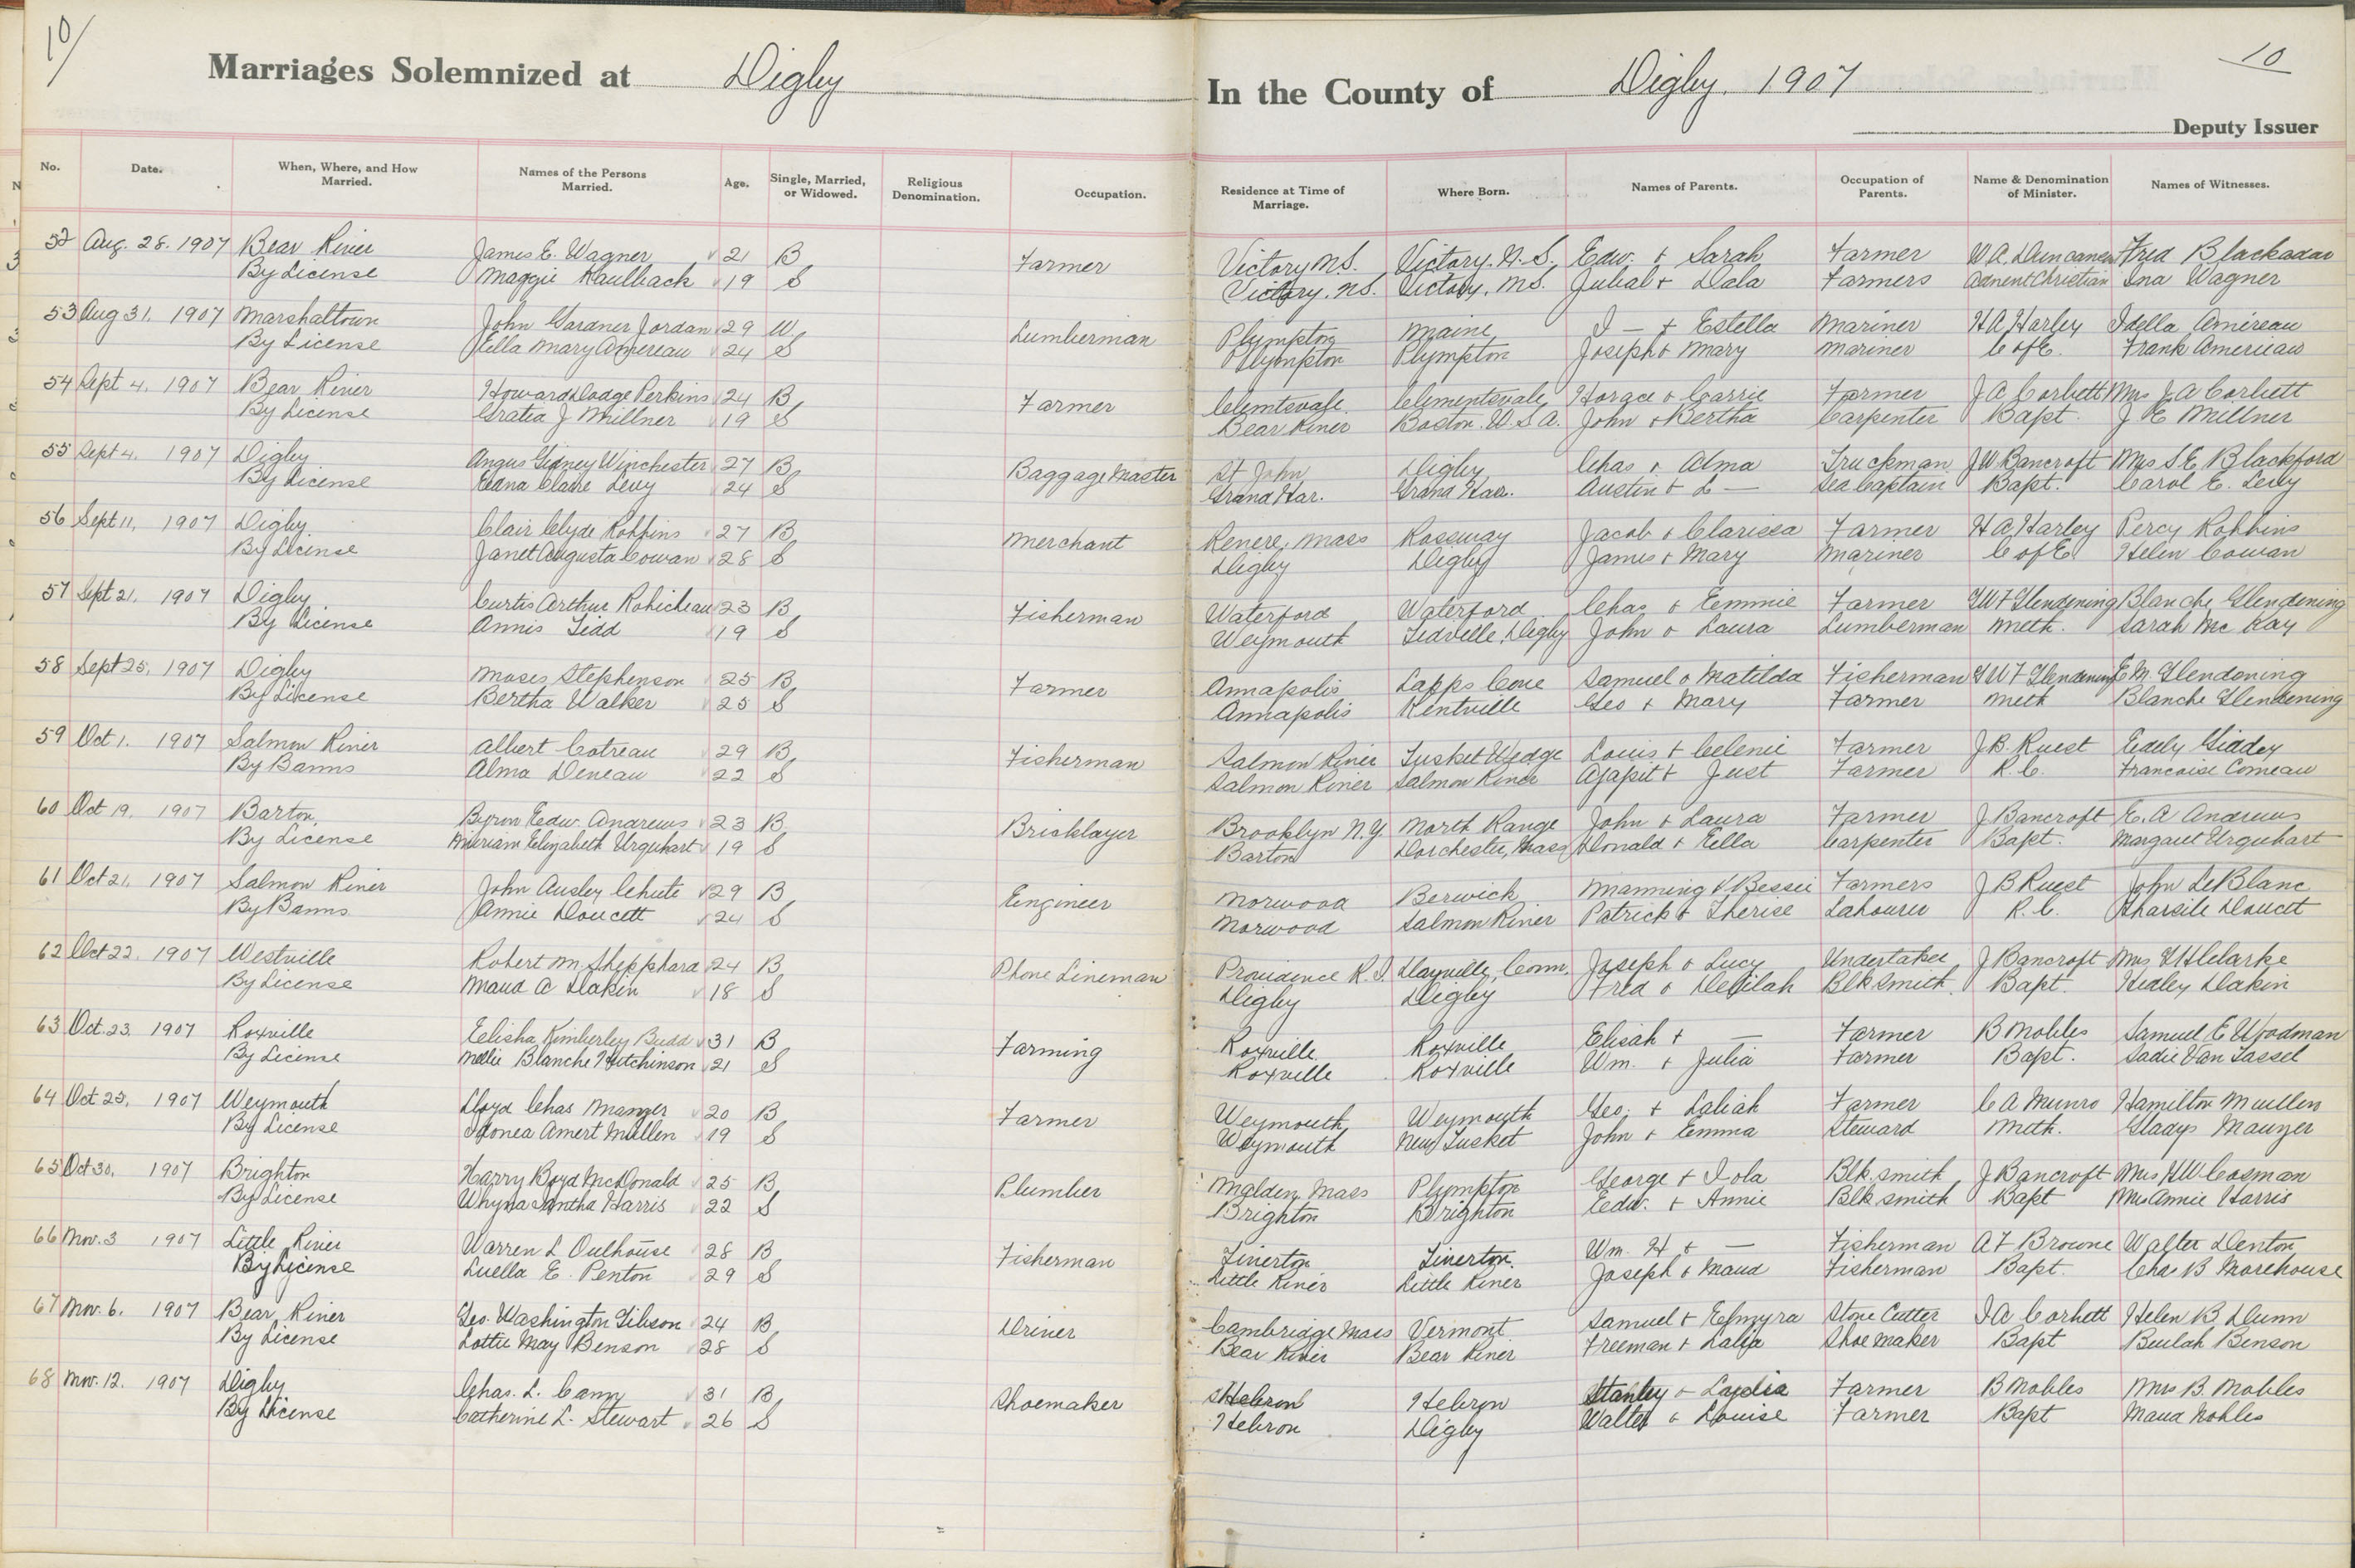 10/
Marriages Solemnized at Digby
In the County of Digby. 1907
10
Deputy Issuer
No. Date. When, Where, and How Married. Names of the Persons Married. Age. Single, Married, or Widowed. Religious Denomination. Occupation. Residence at Time of Marriage. Where Born. Names of Parents. Occupation of Parents. Name & Denomination of Minister. Names of Witnesses.
52 Aug. 28. 1907 Bear River James E. Wagner 21 B Farmer Victory N.S. Victory. N.S. Edw. + Sarah Farmer W.A. Fred Blackadar
By License Maggie Kaulback 19 S Victory, N.S. Victory, N.S. Jubal + Dala Farmers Advent Christian Ina Wagner
53 Aug 31. 1907 Marshaltown John Gardner Jordan 29 W. Lumberman Plympton Maine I — + Estella Mariner H A Harley Idella Amereau
By License Ella Mary Amereau 24 S Plympton Plympton Joseph + Mary Mariner C of E. Frank Amereau
54 Sept 4. 1907 Bear River Howard Dodge Perkins 24 B Farmer Clemtsvale Clementsvale Horace + Carrie Farmer J A Corbett Mrs J. A Corbett
By License Gratia J Millner 19 S Bear River Boston. U.S.A. John + Bertha Carpenter Bapt. J E Millner
55 Sept 4. 1907 Digby Angus Gidney Winchester 27 B Baggage Master St John Digby Chas + Alma Truckman J W Bancroft Mrs S. E. Blackford
By License Edna Claire Levy 24 S Grand Har. Grand Har. Austin + L — Sea Captain Bapt. Carol E. Levy
56 Sept 11, 1907 Digby Clair Clyde Robbins 27 B Merchant Revere, Mass Rossway Jacob + Clarissa Farmer H A Harley Percy Robbins
By License Janet Augusta Cowan 28 S Digby Digby James + Mary Mariner C of E Helen Cowan
57 Sept 21. 1907 Digby Curtis Arthur Robicheau 23 B Fisherman Waterford Waterford Chas + Emmie Farmer G W F Glendening Blanche Glendening
By License Annis Tidd 19 S Weymouth Tidville, Digby John + Laura Lumberman Meth. Sarah Mc Kay
58 Sept 25. 1907 Digby Moses Stephenson 25 B Farmer Annapolis Lapps Cove Samuel + Matilda Fisherman G W F Glendening E M. Glendening
By License Bertha Walker 25 S Annapolis Kentville Geo + Mary Farmer Meth Blanche Glendening
59 Oct 1. 1907 Salmon River Albert Cotreau 29 B Fisherman Salmon River Tusket Wedge Louis + Celenie Farmer J B. Ruest
By Banns Alma Deneau 22 S Salmon River Salmon River Agapit + Just Farmer R. C. Francoise Comeau
60 Oct 19. 1907 Barton Byron Edw. Andrews 23 B Bricklayer Brooklyn N.Y. North Range John + Laura Farmer J Bancroft E. A Andrews
By License Miriam Elizabeth Urquhart 19 S Barton Dorchester, Mass Donald + Ella Carpenter Bapt. Margaret Urquhart
61 Oct 21. 1907 Salmon River John Ansley Chute 29 B Engineer Norwood Berwick Manning + Bessie Farmers J B Ruest John LeBlanc
By Banns. Annie Doucett 24 S Norwood Salmon River Patrick + Therise Labourer R. C. Tharsile Doucet
62 Oct 22. 1907 Westville Robert M. Shepphard 24 B Phone Lineman Providence R.I. Dayville, Conn. Joseph + Lucy Undertaker J Bancroft
By License Maud A Dakin 18 S Digby Digby Fred + Delilah Blksmith. Bapt. Hedley Dakin
63 Oct. 23. 1907 Roxville Elisha Kimberley Budd 31 B Farming Roxville Roxville Elisah + — Farmer B Nobles Samuel E Woodman
By License Mellie Blanche Hutchinson 21 S Roxville Roxville Wm. + Julia Farmer Bapt. Sadie Van Tassel
64 Oct 25. 1907 Weymouth Lloyd Chas Manzer 20 B Farmer Weymouth Weymouth Geo. + Laliah Farmer C A Munro Hamilton Mullen
By License Idonea Amert Mullen 19 S Weymouth New Tusket John + Emma Steward Meth. Gladys Manzer
65 Oct 30. 1907 Brighton Harry Boyd McDonald 25 B Plumber Malden Mass Plympton George + Iola Blk. smith J Bancroft Mrs H W Cosman
By License Harris 22 S Brighton Brighton Edw. + Annie Blk smith Bapt Mrs Annie Harris
66 Nov. 3 1907 Little River Warren L Outhouse 28 B Fisherman Tiverton Tiverton. Wm. H + — Fisherman A F Browne Walter Denton
By License Luella E. Penton 29 S Little River Little River Joseph + Maud Fisherman Bapt. Chas B Morehouse
67 Nov. 6. 1907 Bear River Geo. Washington Gibson 24 B Driver Cambridge Mass Vermont Samuel + Elmyra Stone Cutter I A Corbett Helen B Dunn
By License Lottie May Benson 28 S Bear River Bear River Freeman + Lalia Shoemaker Bapt Beulah Benson
68 Nov. 12. 1907 Digby Chas. L. Cann 31 B Shoemaker Hebron Hebron Stanley + Lydia Farmer B Nobles Mrs B. Nobles
By License Catherine L. Stewart 26 S Hebron Digby Walter + Louise Farmer Bapt Maud Nobles